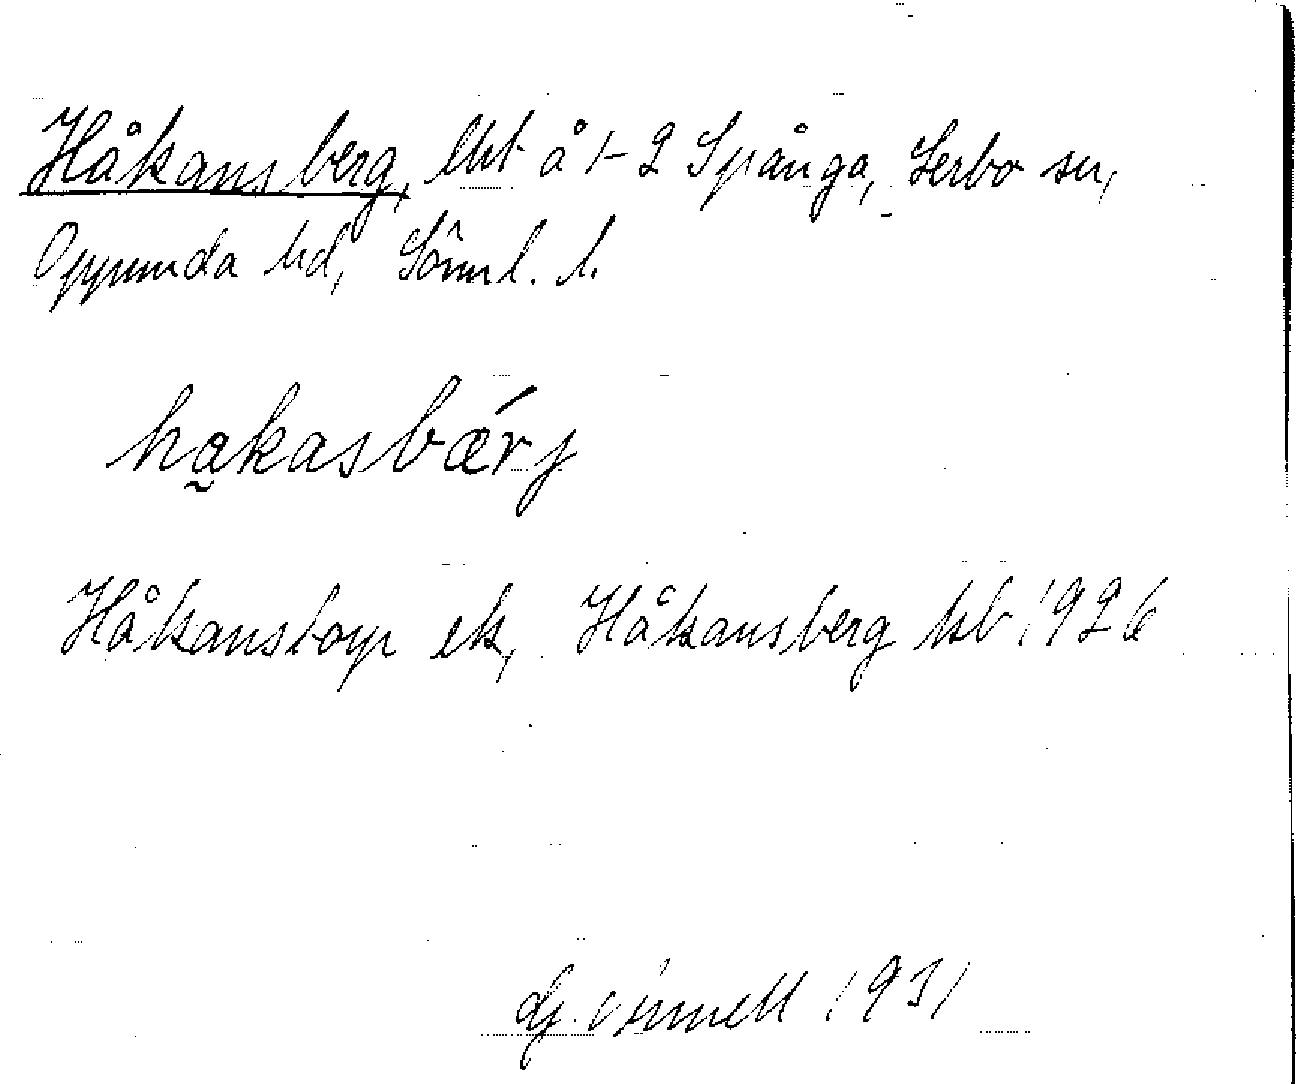 Håkansberg, lht å 1-2 Spånga, Lerbo sn,
Oppunda hd, Söml. l.
hakasbǽrj
Håkanstorp ek, Håkansberg hsb 1926
1931